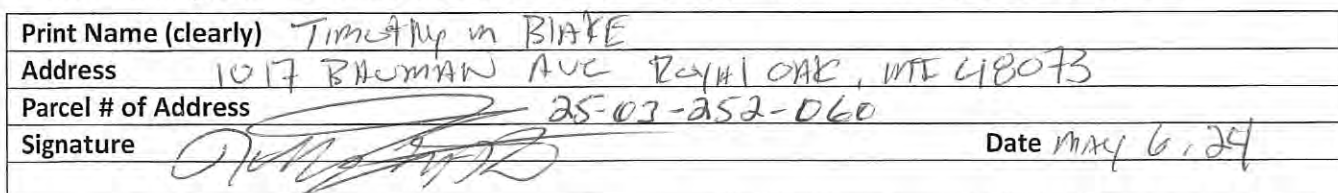 Print Name (clearly) Timothy M BlAKE
Address 1017 BAUMAN AVE ROYAl OAK, MI 48073
Parcel # of Address 25-03-252-060
Signature Date MAY 6, 24